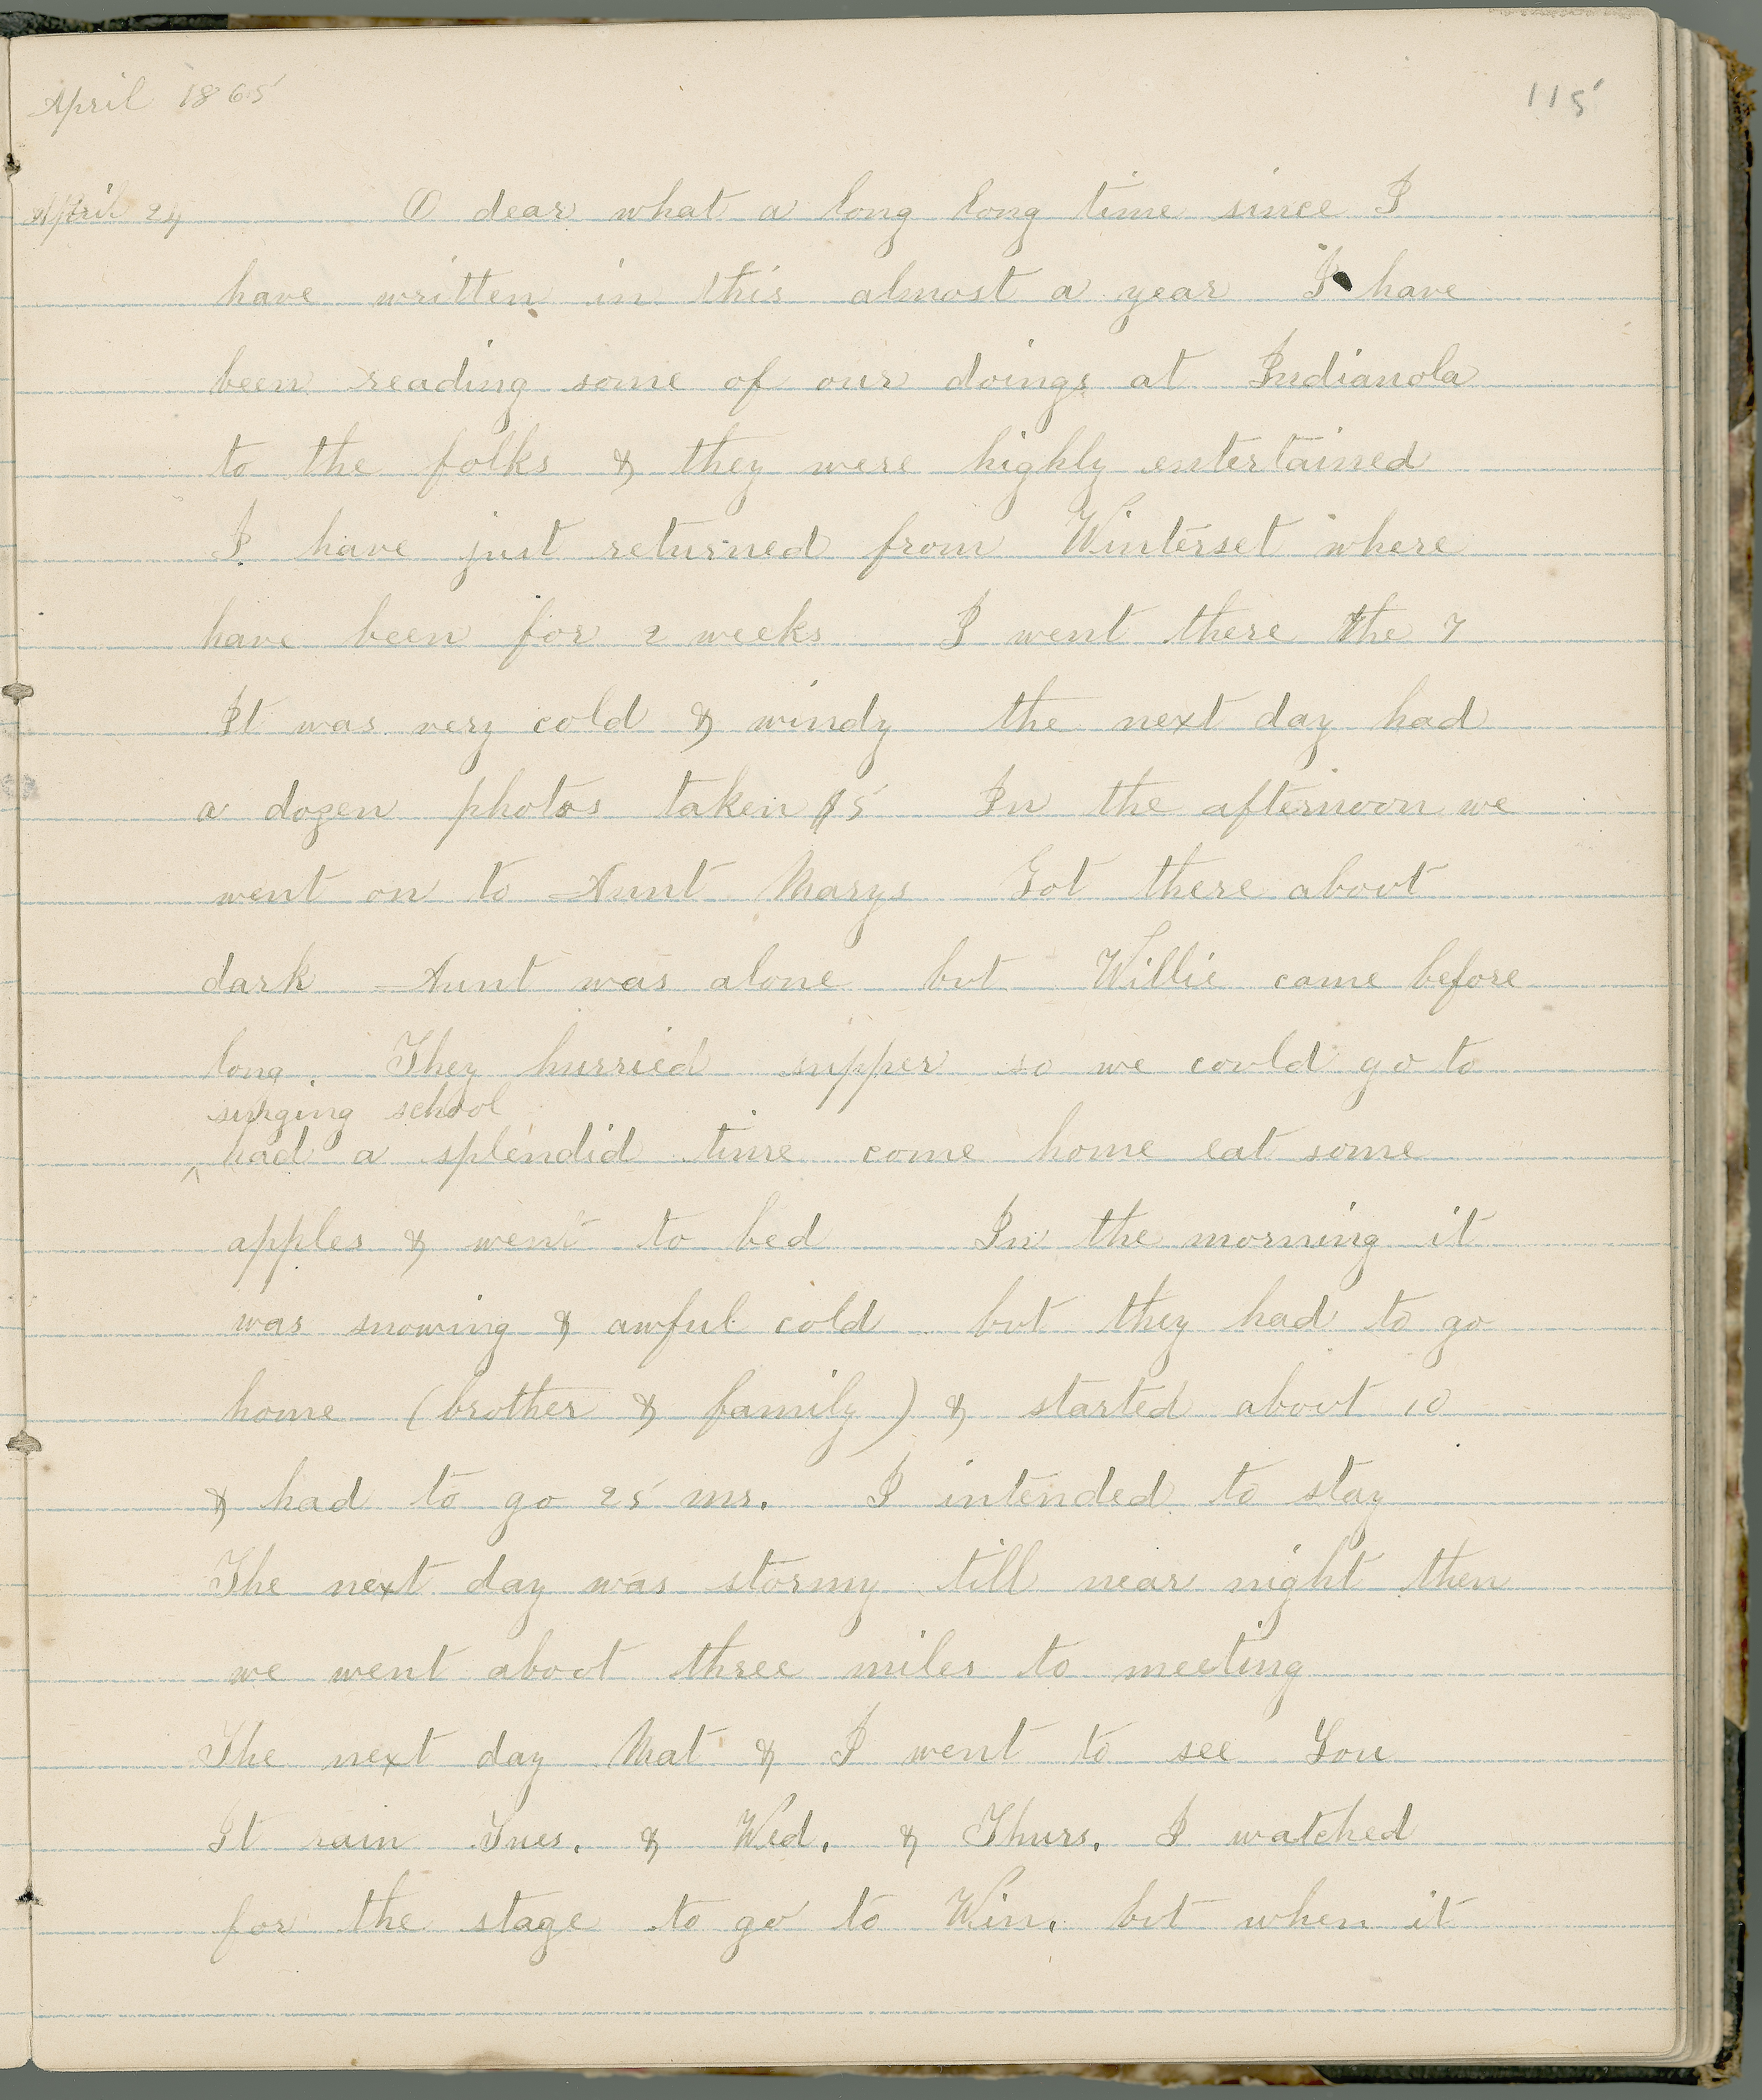 April 1865
115
April 24 O dear what a long long time since I
have written in this almost a year I have
been reading some of our doings at Indianola
to the folks & they were highly entertained
I have just returned from Winterset where
have been for 2 weeks I went there the 7
It was very cold & windy the next day had
a dozen photos taken $5 In the afternoon we
went on to Aunt Marys Got there about
dark Aunt was alone but Willie came before
long. They hurried supper so we could go to
singing school
^ had a splendid time come home eat some
apples & went to bed In the morning it
was snowing & awful cold but they had to go
home (brother & family) & started about 10
& had to go 25 ms. I intended to stay
The next day was stormy till near night then
we went about three miles to meeting
The next day Mat & I went to see Lou
It rain Tues. & Wed. & Thurs. I watched
for the stage to go to Win. but when it